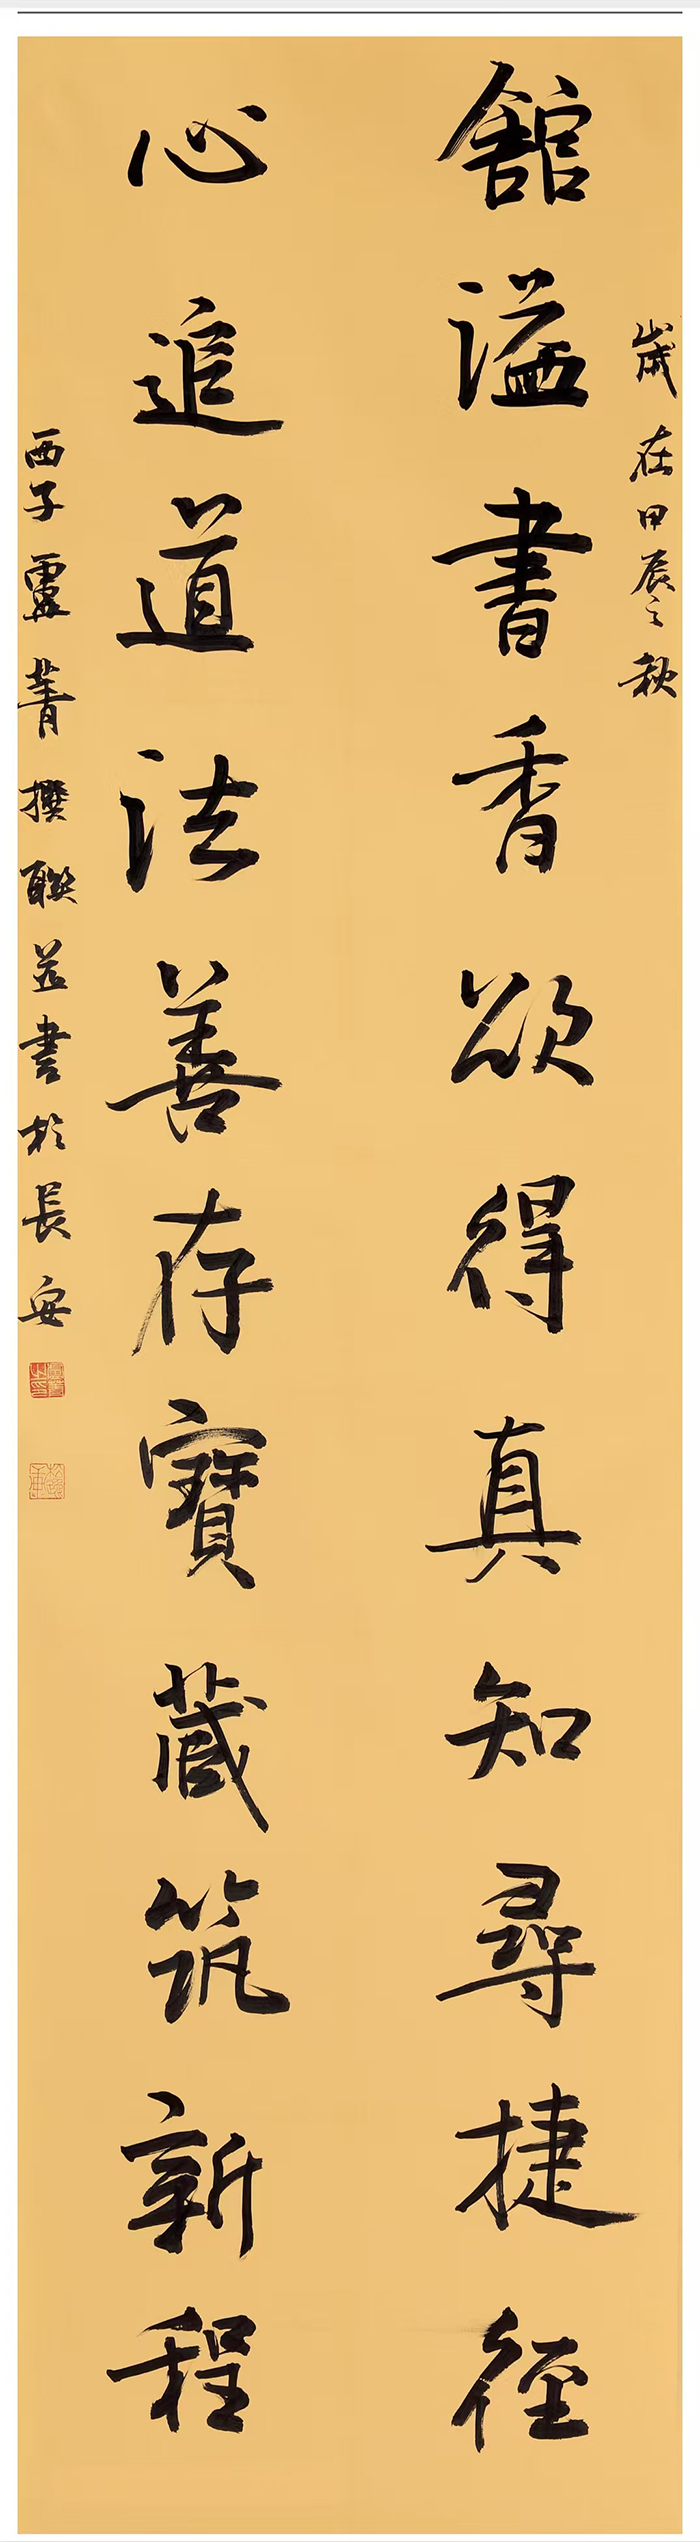 歲在甲辰之秋
舘溢書香欲得真知尋捷徑
心追道法善存寶藏筑新程
西子靈菁撰聯並書於長安